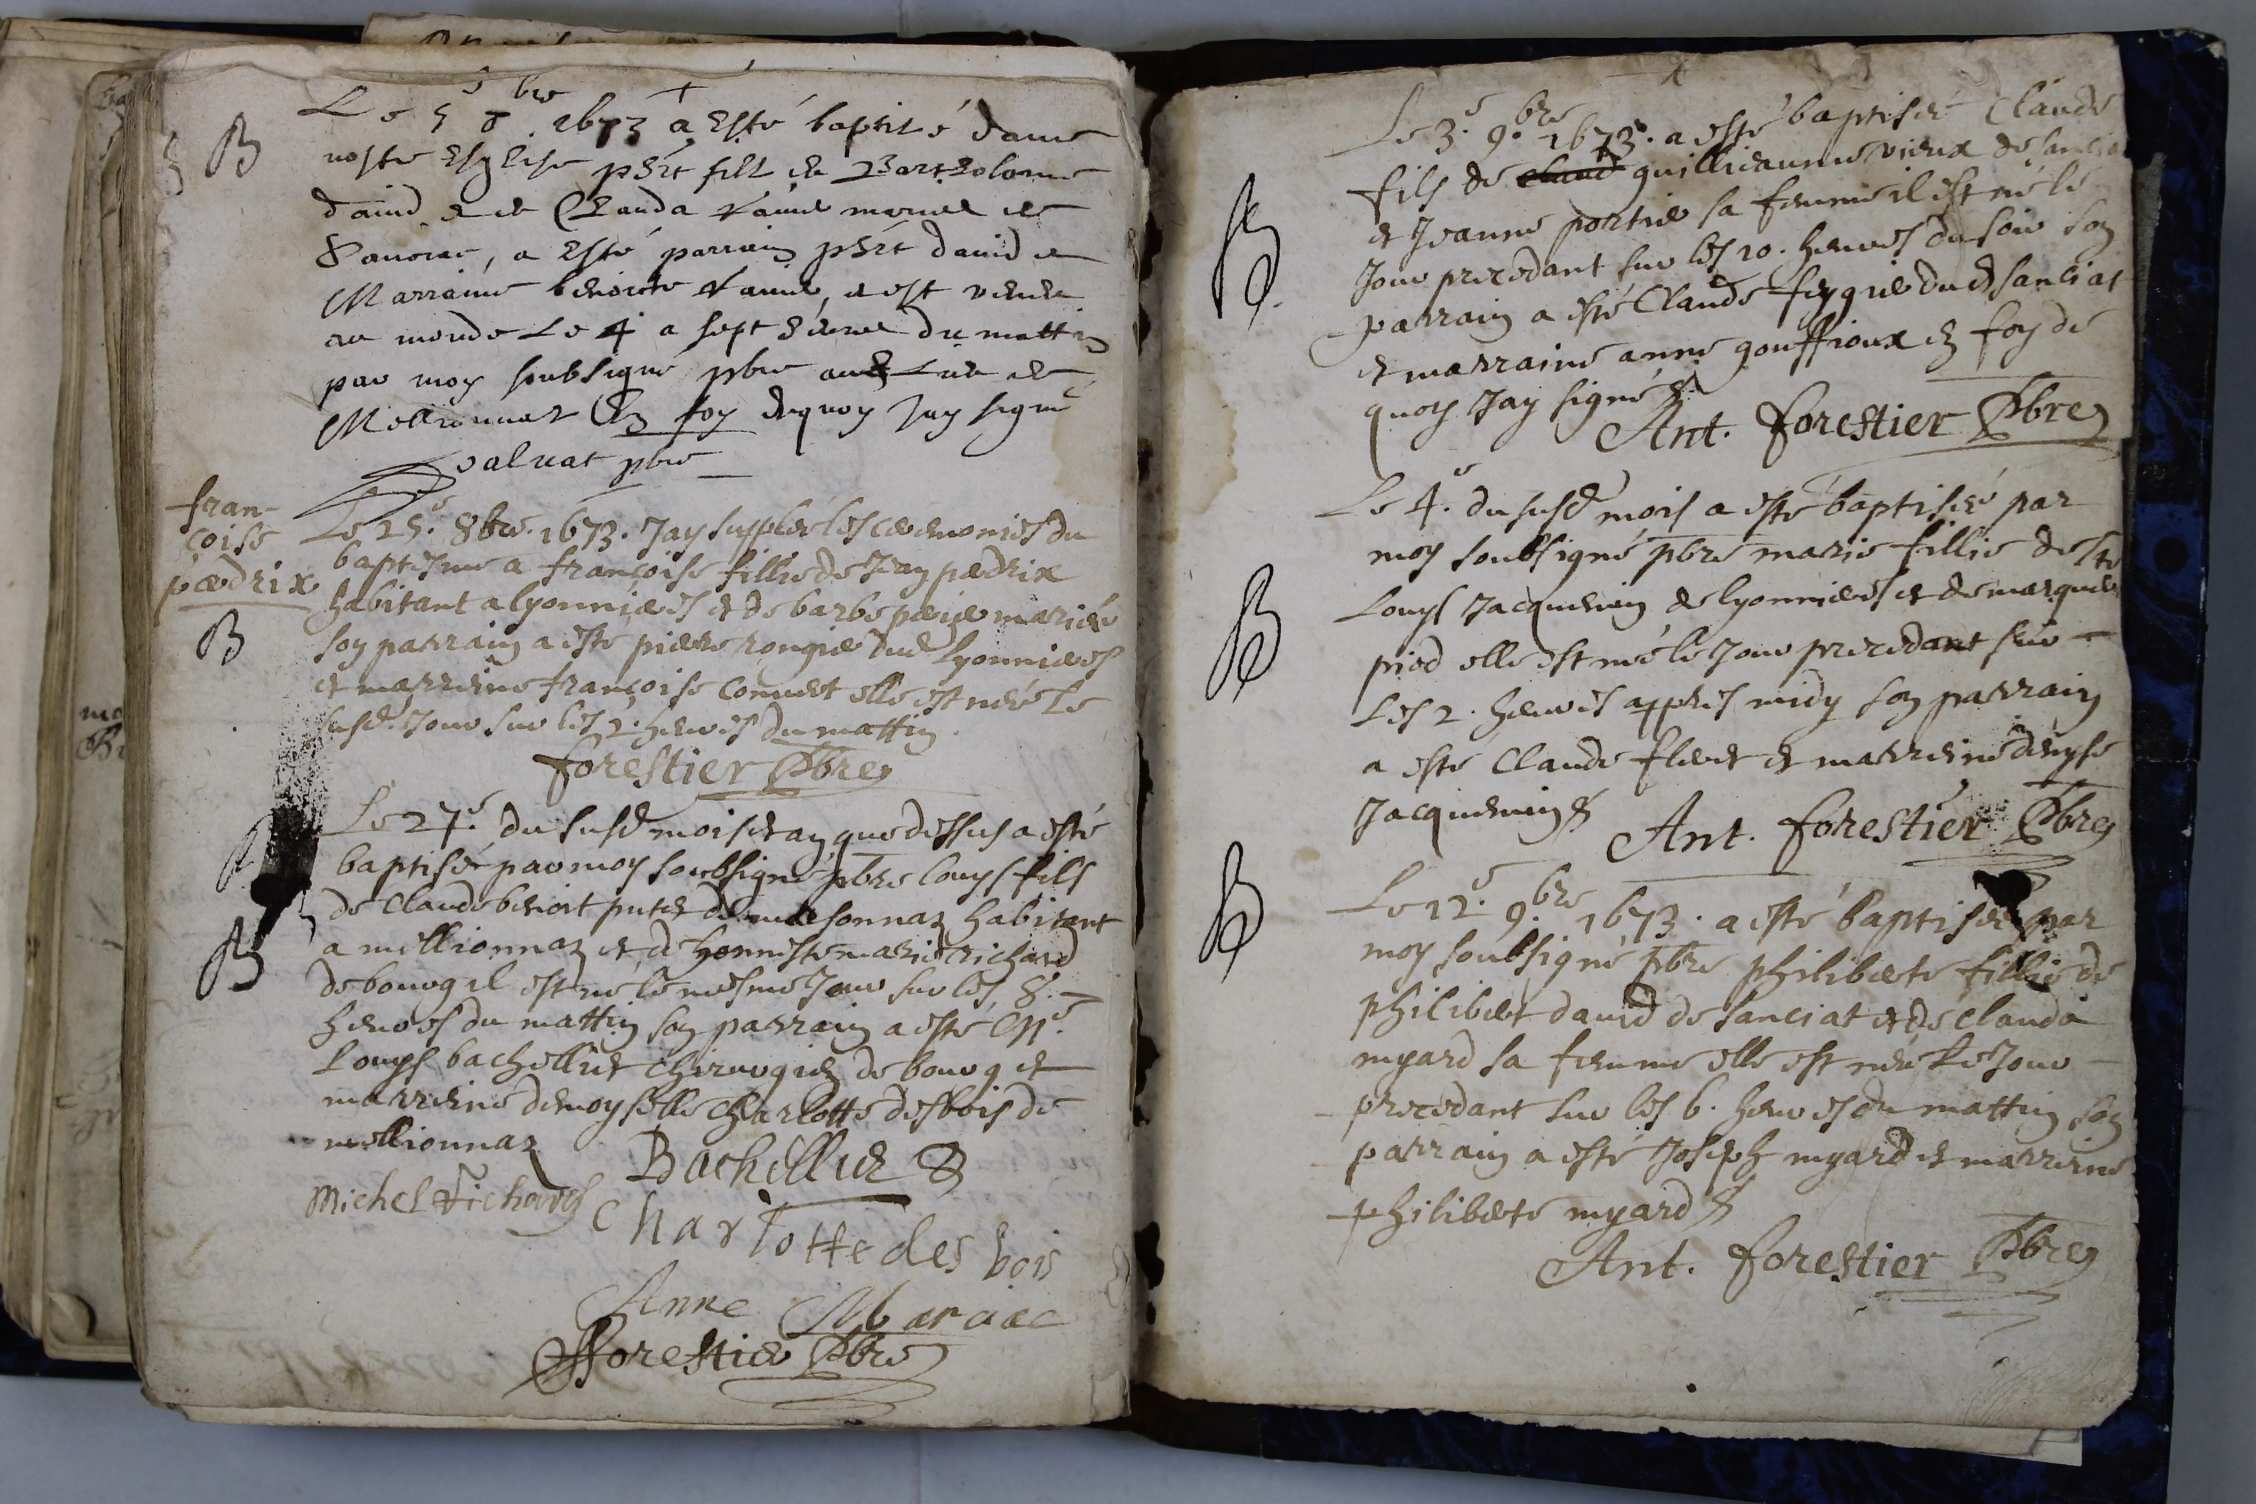 B
Le 5e 8bre 1673 a Esté baptisé dans
nostre Esglise fils de Bartholome
david et de Clauda mariés de
Sanciat, a Esté parrain david et
Marraine benoite et est venu
au monde Le 4 a sept heures du mattin
par moy soubsigné pbre
Mellionnaz En foy dequoy Jay signé
pbre
fran-
çoise
perdrix
B
Le 25e. 8bre. 1673. Jay supplée les ceremonies du
baptisme a françoise fillie de Jean perdrix
habitant a lyonnieres et de barbe mariés
son parrain a esté pierre rongier dud lyonnieres
et marreine françoise Convert elle est née le
susd. Jour sur les 2. heures du mattin.
forestier Pbre
Le 27e. du susd mois et an que dessus a esté
baptisé par moy soubsigné pbre louys fils
de Claude benoit habitant
a mellionnaz et de honneste marie richard
de bourg il est né le mesme Jour sur les 8.
heures du mattin son parrain a esté Me.
Louys bachellier chirurgien de bourg et
marreine demoyselle Charlotte desbois de
mellionnaz
B
Bachellier
Michel Richard
Charlotte des bois
Anne
fforestier Pbre
Le 3e. 9bre. 1673. a esté baptisé Claude
fils de claud guillieaume vieux de sanciat
et Jeanne portier sa femme il est né le
Jour precedant sur les 10. heures du soir son
parrain a esté Claude dud sanciat
et marraine anne gouffioux en foy de
quoy Jay signé
Ant. forestier Pbre
B
Le 4e. du susd mois a esté baptisée par
moy soubsigné pbre marie fillie de
Louys Jacquemin de lyonnieres et de
piod elle est née le Jour precedant sur
Les 2. heures appres midy son parrain
a esté Claude et marreine denyse
Jacquemin
Ant. forestier Pbre
B
Le 12e. 9bre 1673. a esté baptisée par
moy soubsigné pbre philiberte fillie de
philibert david de sanciat et de clauda
myard sa femme elle est née le Jour
precedant sur les 6. heures du mattin son
parrain a esté Joseph myard et marreine
philiberte myard
Ant. forestier Pbre